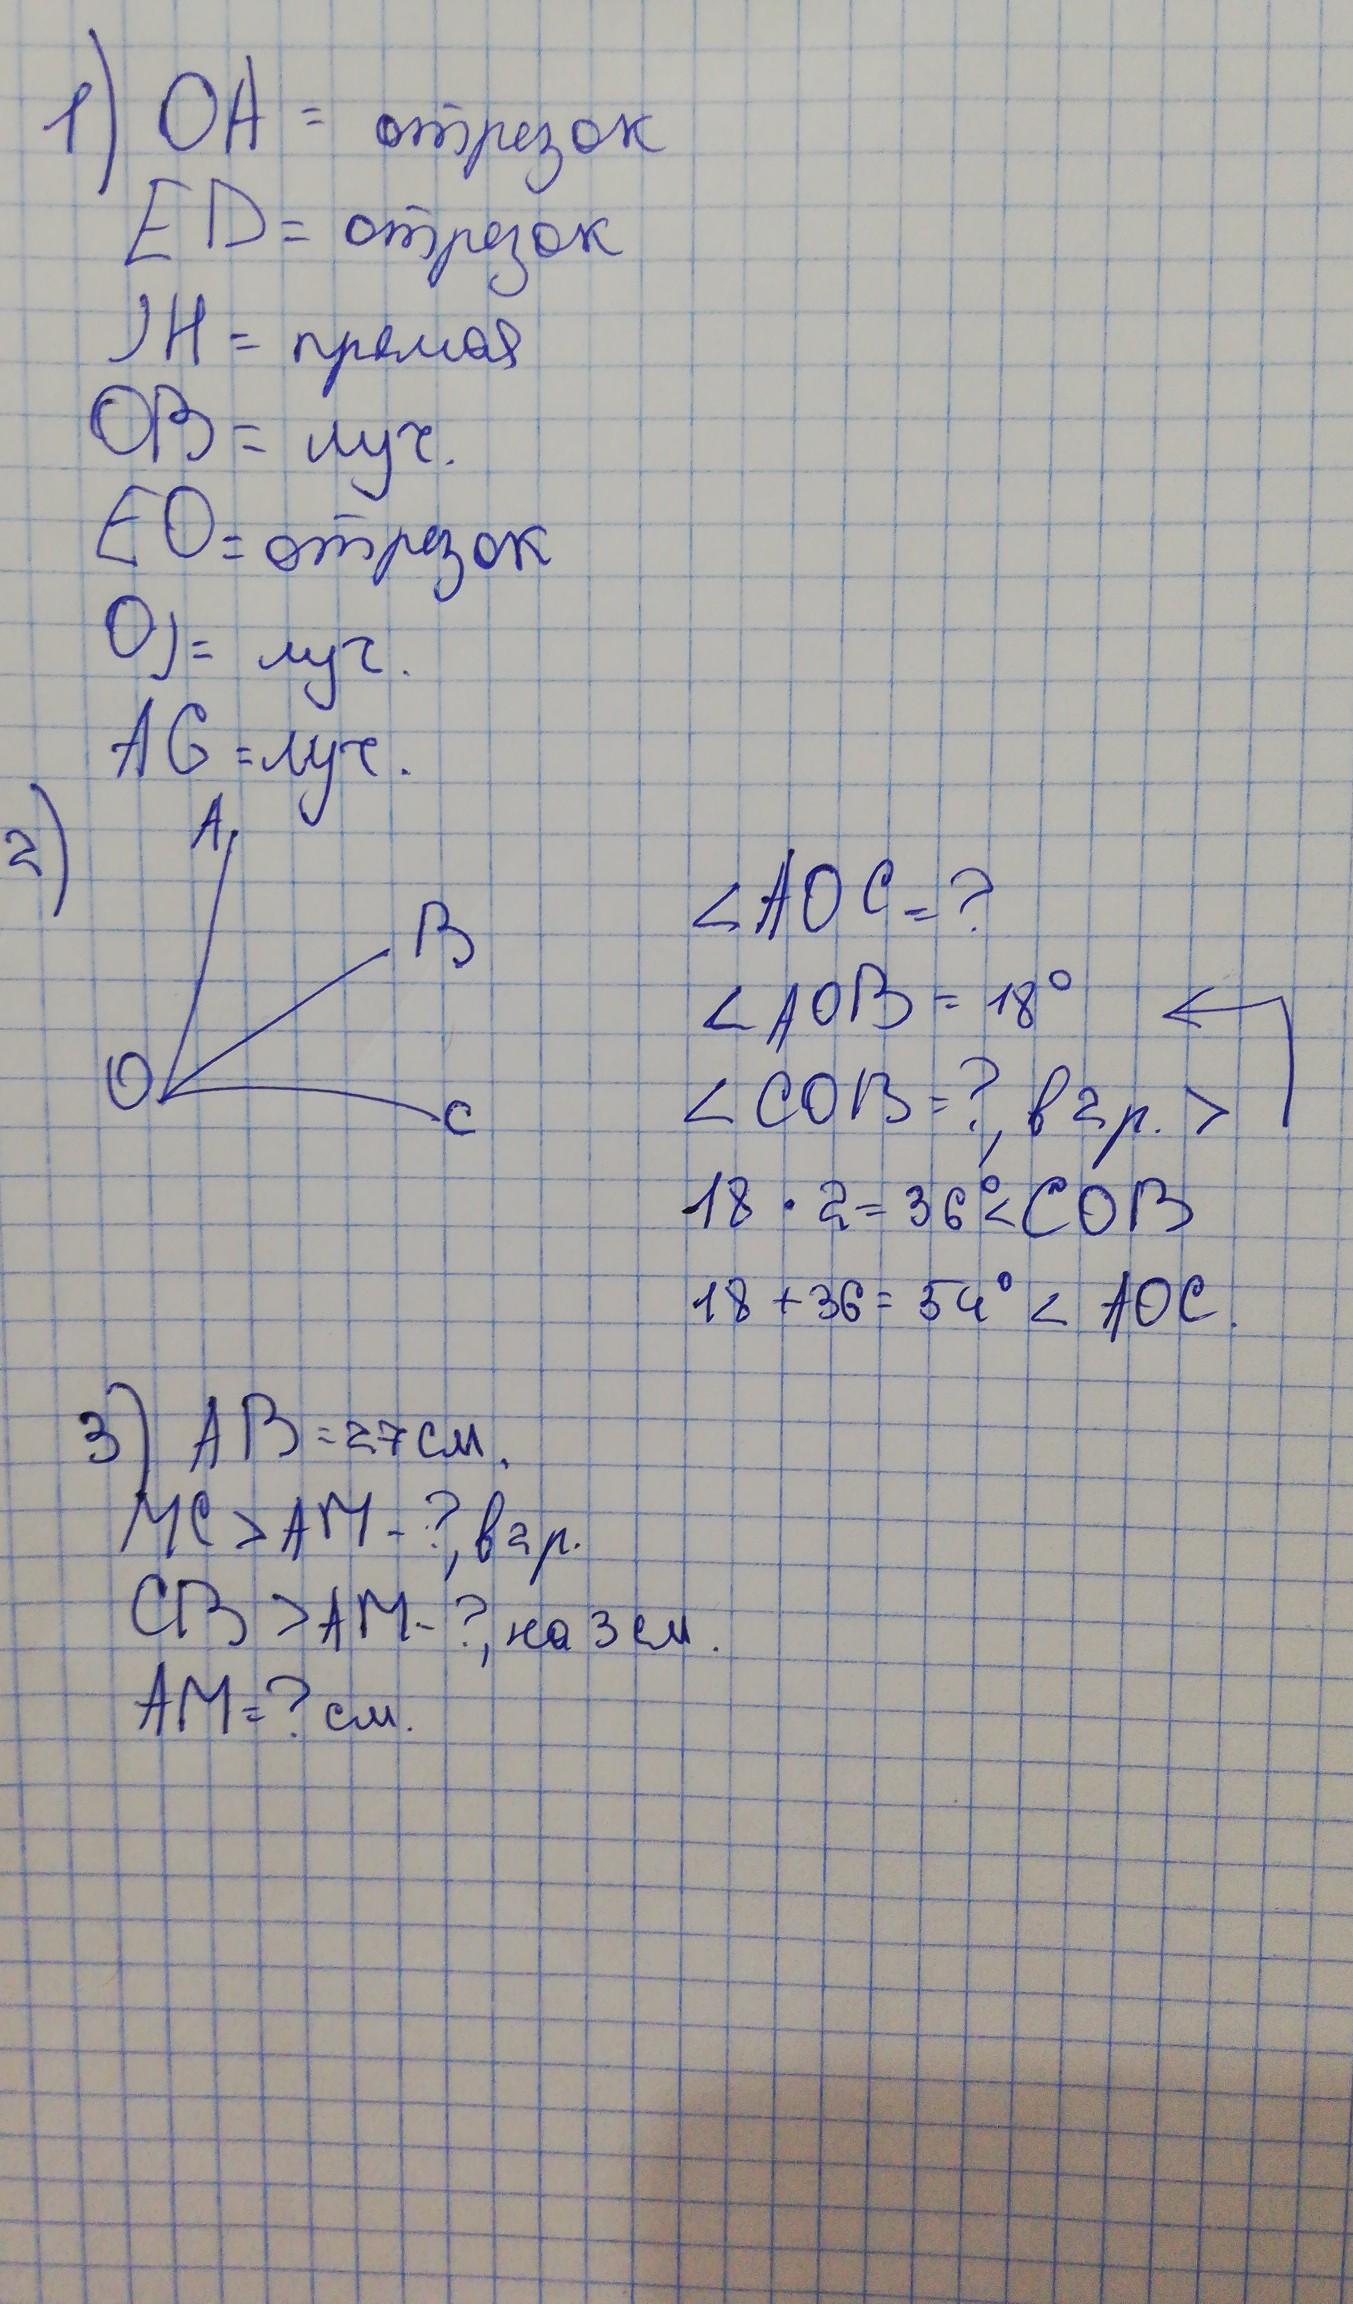 1) OA = отрезок
ED = отрезок
JH = прямая
OB = луч.
EO = отрезок
OJ = луч.
AG = луч.
2)
A
B
O
C
<AOC = ?
<AOB = 18°
<COB = ?, в 2р. >
18 · 2 = 36° <COB
18 + 36 = 54° < AOC.
3) AB = 27 см.
MC > AM - ?, в 2р.
CB > AM - ?, на 3 см.
AM = ? см.